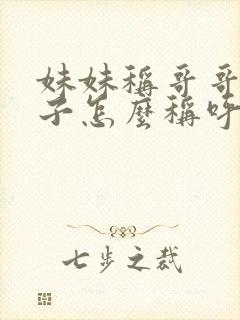 妹妹稱哥哥
子怎麼稱呼
七步之裁